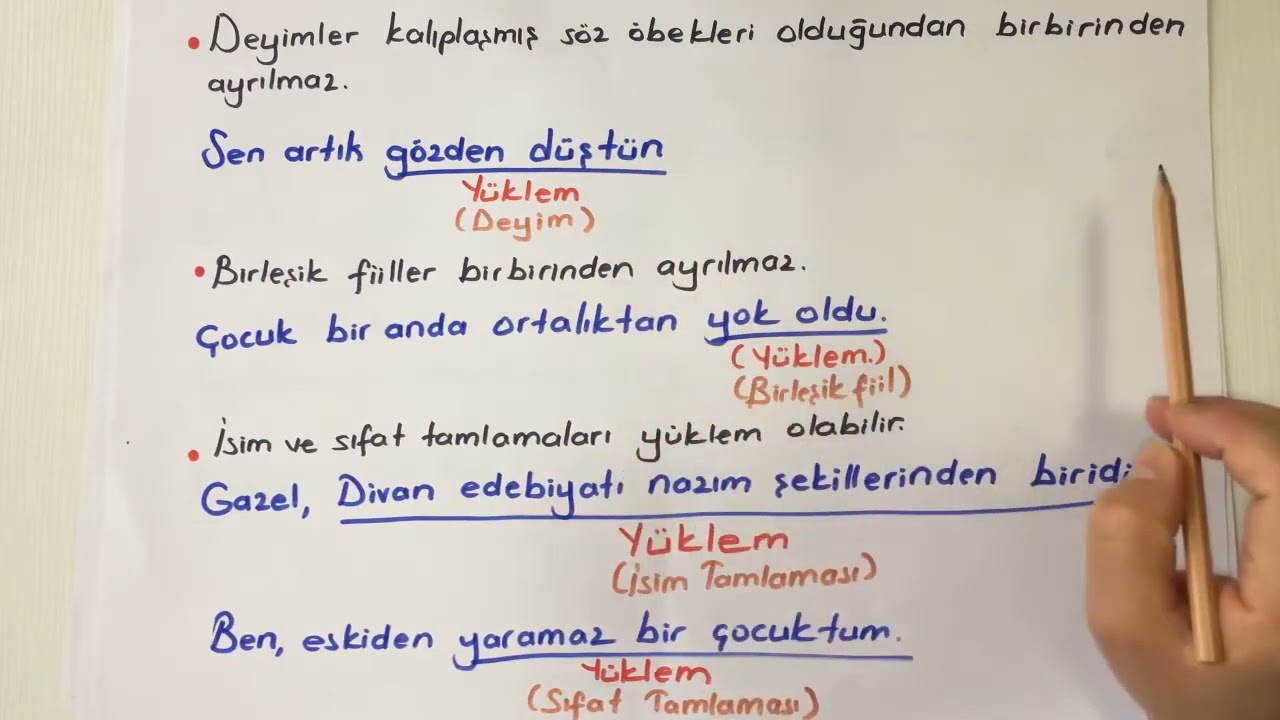 • Deyimler kalıplaşmış söz öbekleri olduğundan birbirinden
ayrılmaz.
Sen artık gözden düştün
Yüklem
(Deyim)
• Birleşik fiiller birbirinden ayrılmaz.
Çocuk bir anda ortalıktan yok oldu.
(Yüklem.)
(Birleşik fiil)
• İsim ve sıfat tamlamaları yüklem olabilir.
Gazel, Divan edebiyatı nazım şekillerinden biridi
Yüklem
(İsim Tamlaması)
Ben, eskiden yaramaz bir çocuktum.
Yüklem
(Sıfat Tamlaması)